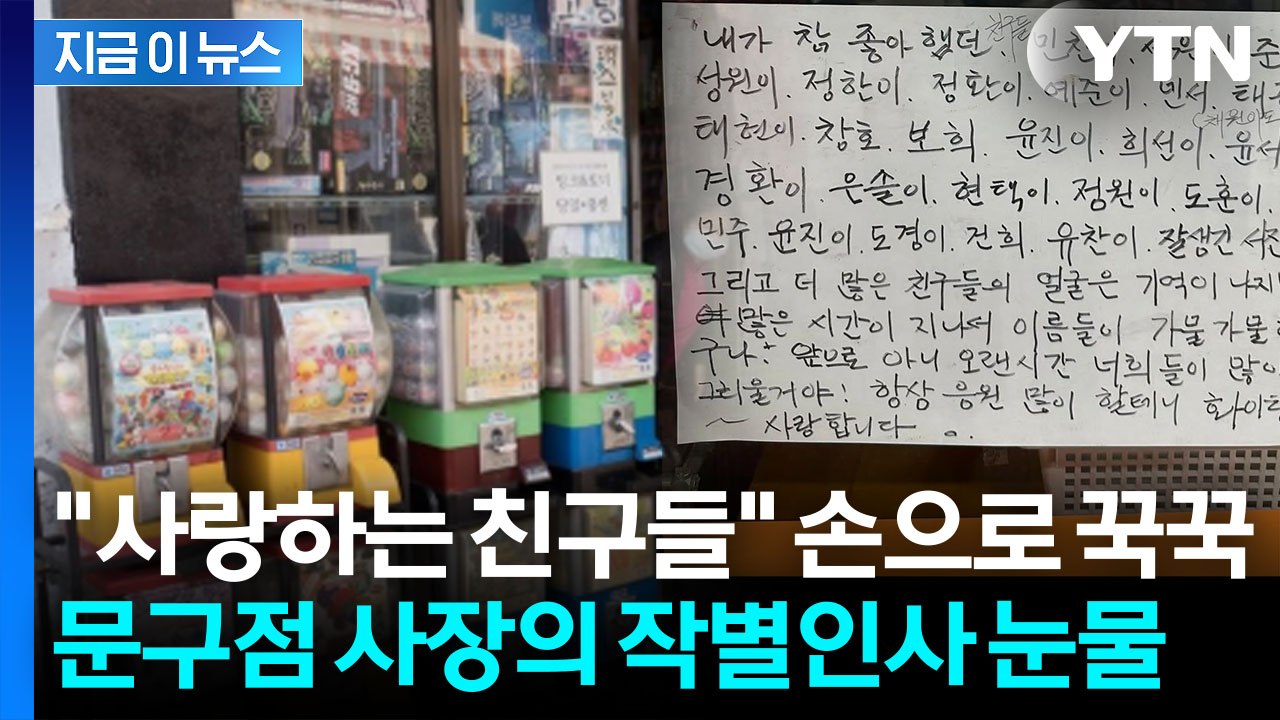 지금 이 뉴스
YTN
내가 참 좋아했던 친구들
성원이. 정한이. 정환이. 예준이. 민서.
(채원이도
태현이. 창호. 보희. 윤진이. 희선이. 윤서
경환이. 은솔이. 현택이. 정원이. 도훈이.
민주. 윤진이. 도경이. 건희. 유찬이. 잘생긴
그리고 더 많은 친구들의 얼굴은 기억이 나지
많은 시간이 지나서 이름들이 가물가물
구나. 앞으로 아니 오랜시간 너희들이 많이
그리울거야! 항상 응원 많이 할테니 화이팅
~ 사랑합니다 ~
"사랑하는 친구들" 손으로 꾹꾹
문구점 사장의 작별인사 눈물